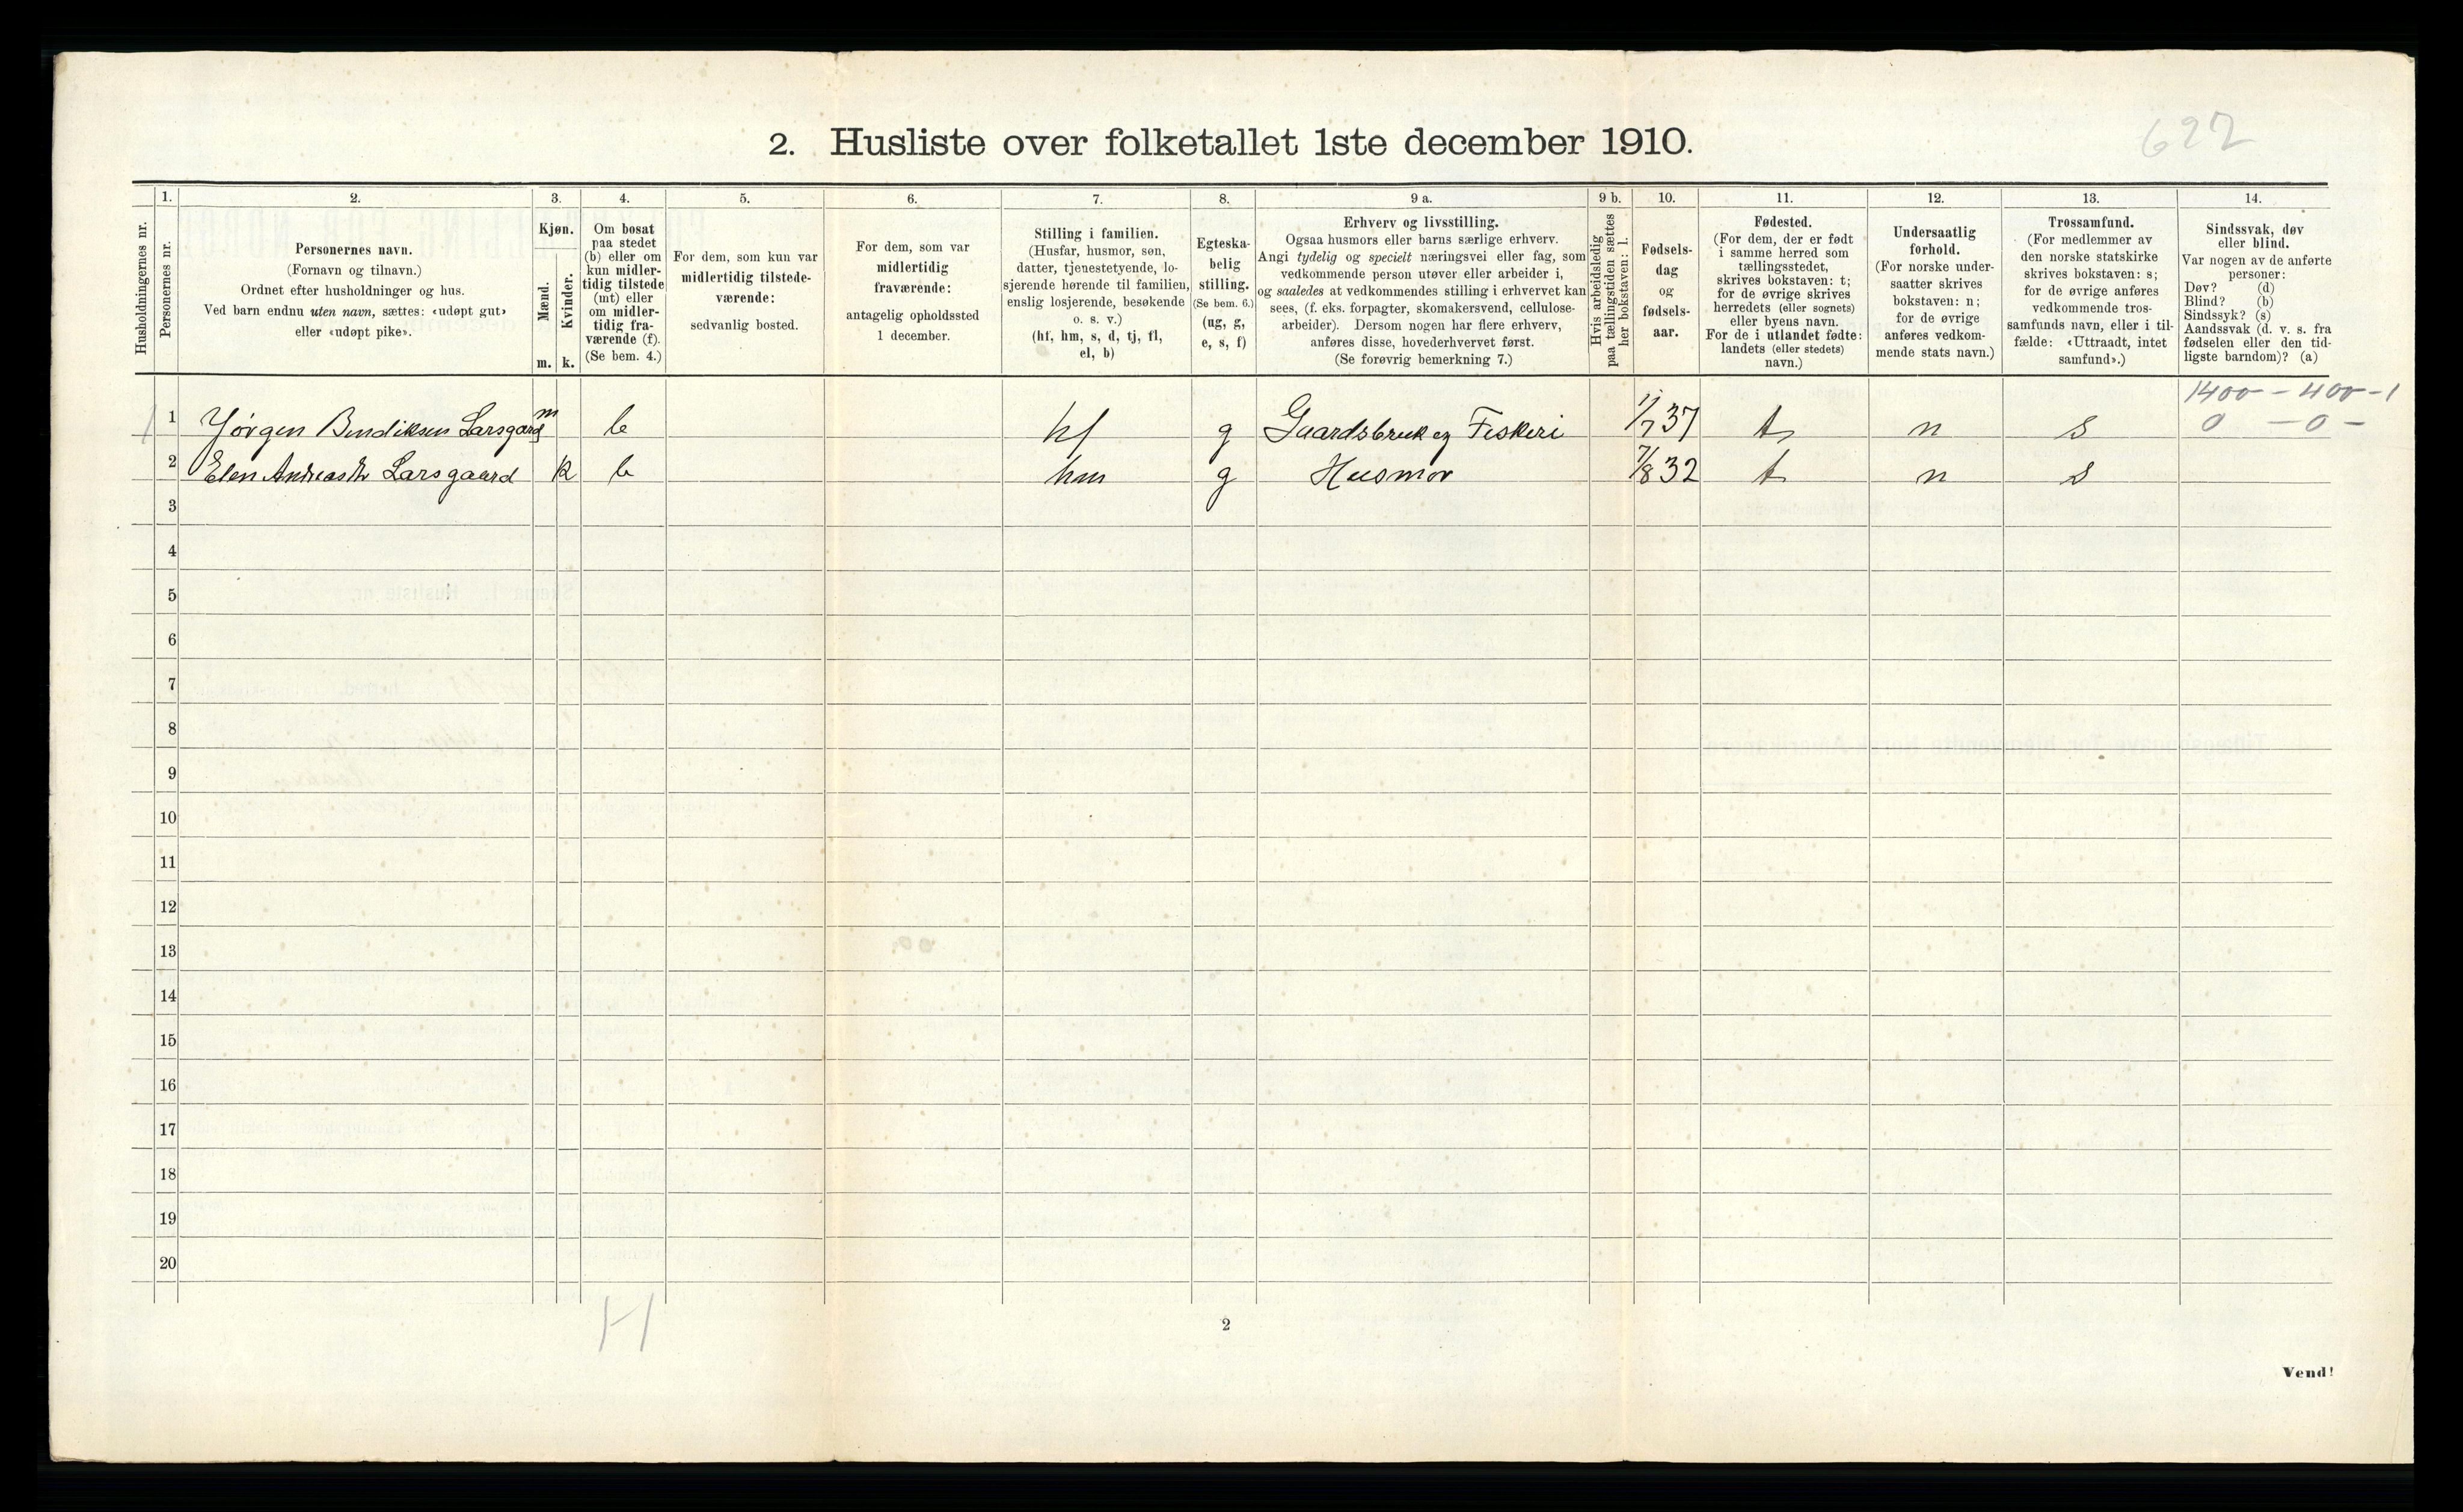 2. Husliste over folketallet 1ste december 1910.
622
Husholdningernes nr.
1.
Personernes nr.
2.
Personernes navn.
(Fornavn og tilnavn.)
Ordnet efter husholdninger og hus.
Ved barn endnu uten navn, sættes: «udøpt gut»
eller «udøpt pike».
3.
Kjøn.
Mænd.
Kvinder.
m. k.
4.
Om bosat
paa stedet
(b) eller om
kun midler-
tidig tilstede
(mt) eller
om midler-
tidig fra-
værende (f).
(Se bem. 4.)
5.
For dem, som kun var
midlertidig tilstede-
værende:
sedvanlig bosted.
6.
For dem, som var
midlertidig
fraværende:
antagelig opholdssted
1 december.
7.
Stilling i familien.
(Husfar, husmor, søn,
datter, tjenestetyende, lo-
sjerende hørende til familien,
enslig losjerende, besøkende
o. s. v.)
(hf, hm, s, d, tj, fl,
el, b)
8.
Egteska-
belig
stilling.
(Se bem. 6.)
(ug, g,
e, s, f)
9 a.
Erhverv og livsstilling.
Ogsaa husmors eller barns særlige erhverv.
Angi tydelig og specielt næringsvei eller fag, som
vedkommende person utøver eller arbeider i,
og saaledes at vedkommendes stilling i erhvervet kan
sees, (f. eks. forpagter, skomakersvend, cellulose-
arbeider). Dersom nogen har flere erhverv,
anføres disse, hovederhvervet først.
(Se forøvrig bemerkning 7.)
9 b.
Hvis arbeidsledig
paa tællingstiden sættes
her bokstaven: l.
10.
Fødsels-
dag
og
fødsels-
aar.
11.
Fødested.
(For dem, der er født
i samme herred som
tællingsstedet,
skrives bokstaven: t;
for de øvrige skrives
herredets (eller sognets)
eller byens navn.
For de i utlandet fødte:
landets (eller stedets)
navn.)
12.
Undersaatlig
forhold.
(For norske under-
saatter skrives
bokstaven: n;
for de øvrige
anføres vedkom-
mende stats navn.)
13.
Trossamfund.
(For medlemmer av
den norske statskirke
skrives bokstaven: s;
for de øvrige anføres
vedkommende tros-
samfunds navn, eller i til-
fælde: «Uttraadt, intet
samfund».)
14.
Sindssvak, døv
eller blind.
Var nogen av de anførte
personer:
Døv? (d)
Blind? (b)
Sindssyk? (s)
Aandssvak (d. v. s. fra
fødselen eller den tid-
ligste barndom)? (a)
1400 - 400 - 1
0 - 0 -
1 1 Jørgen Bendiksen Larsgaard m b hf g Gaardsbruk og Fiskeri 1/7 37 t n s
2 Elen Andreasdtr Larsgaard k b hm g Husmor 7/8 32 t n s
3
4
5
6
7
8
9
10
11
12
13
14
15
16
17
18
19
20
H
2
Vend!